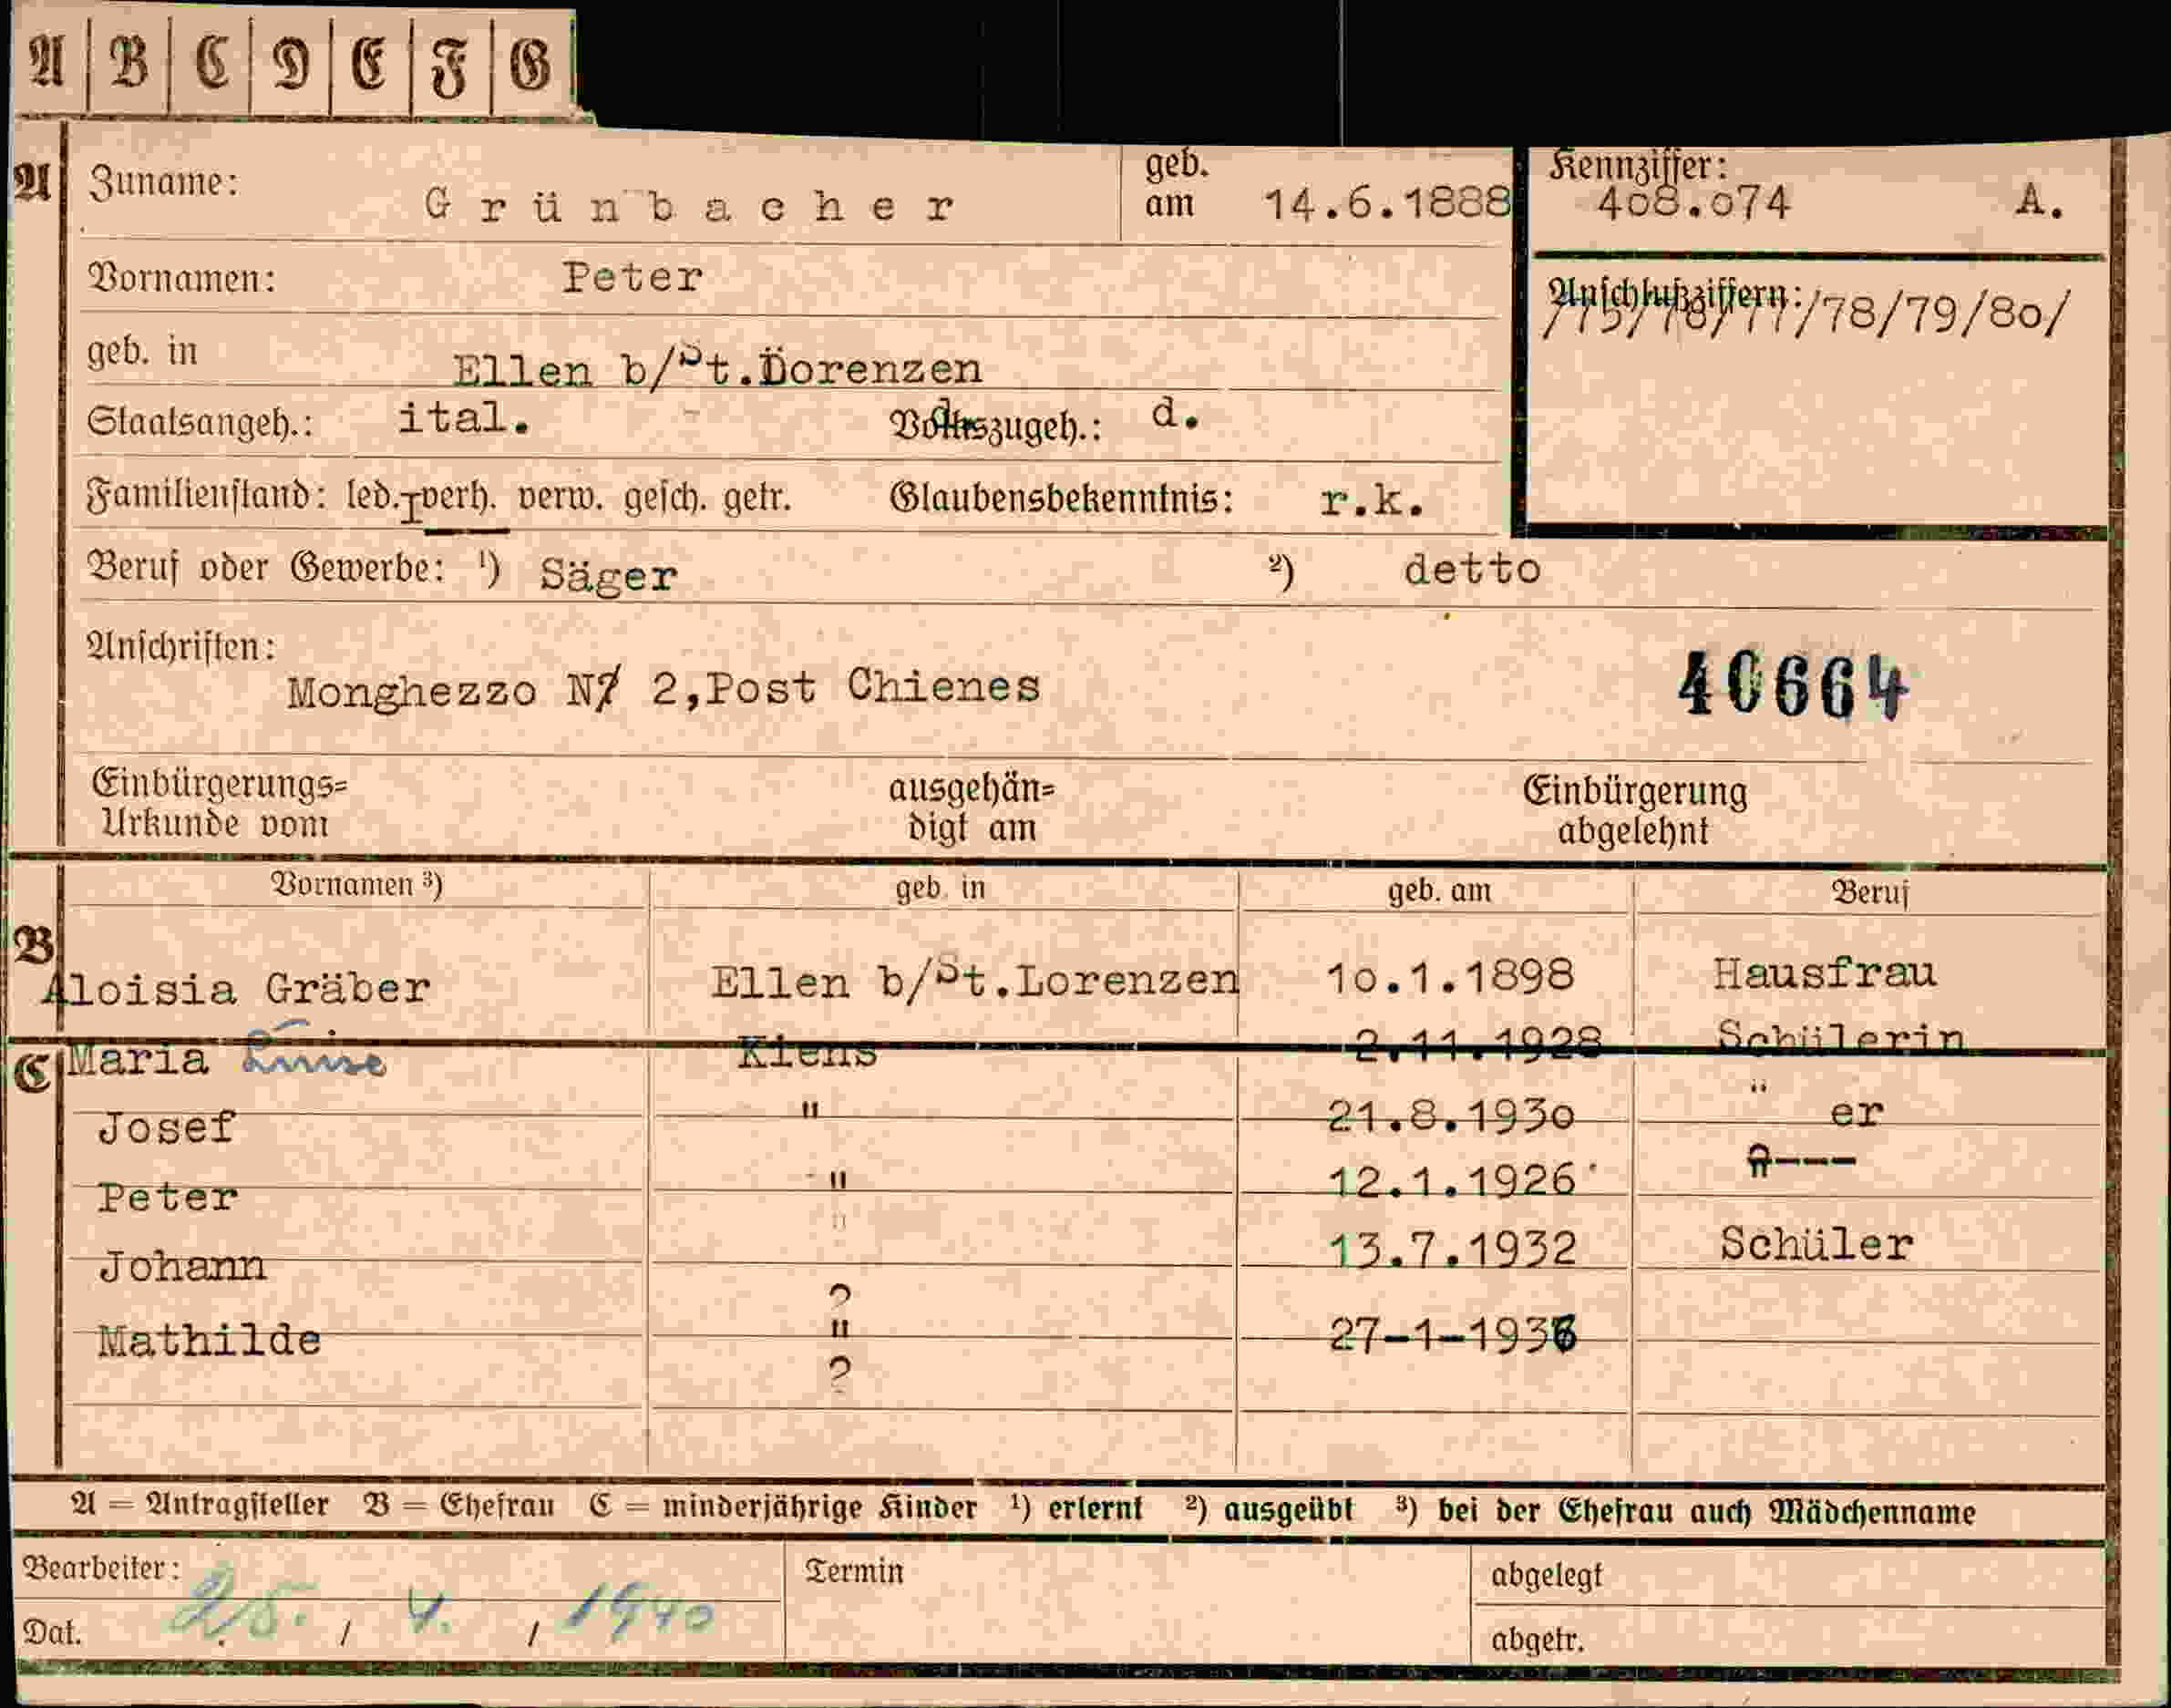 A B C D E F G
A Zuname: Grünbacher geb. am 14.6.1888 Kennziffer: 408.074 A.
Vornamen: Peter Anschlußziffern: /75/76/77/78/79/80/
geb. in Ellen b/St.Lorenzen
Staatsangeh.: ital. Volkszugeh.: d.
Familienstand: led. verh. verw. gesch. getr. Glaubensbekenntnis: r.k.
Beruf oder Gewerbe: ¹) Säger ²) detto
Anschriften:
Monghezzo N 2,Post Chienes 40664
Einbürgerungs= ausgehän= Einbürgerung
Urkunde vom digt am abgelehnt
Vornamen ³) geb. in geb. am Beruf
B
Aloisia Gräber Ellen b/St.Lorenzen 10.1.1898 Hausfrau
C Maria Luise Kiens 2.11.1928 Schülerin
Josef " 21.8.1930 " er
Peter " 12.1.1926 ---
Johann " 13.7.1932 Schüler
?
Mathilde " 27-1-1936
?
A = Antragsteller B = Ehefrau C = minderjährige Kinder ¹) erlernt ²) ausgeübt ³) bei der Ehefrau auch Mädchenname
Bearbeiter: Termin abgelegt
Dat. 25. / 4. / 1940 abgetr.